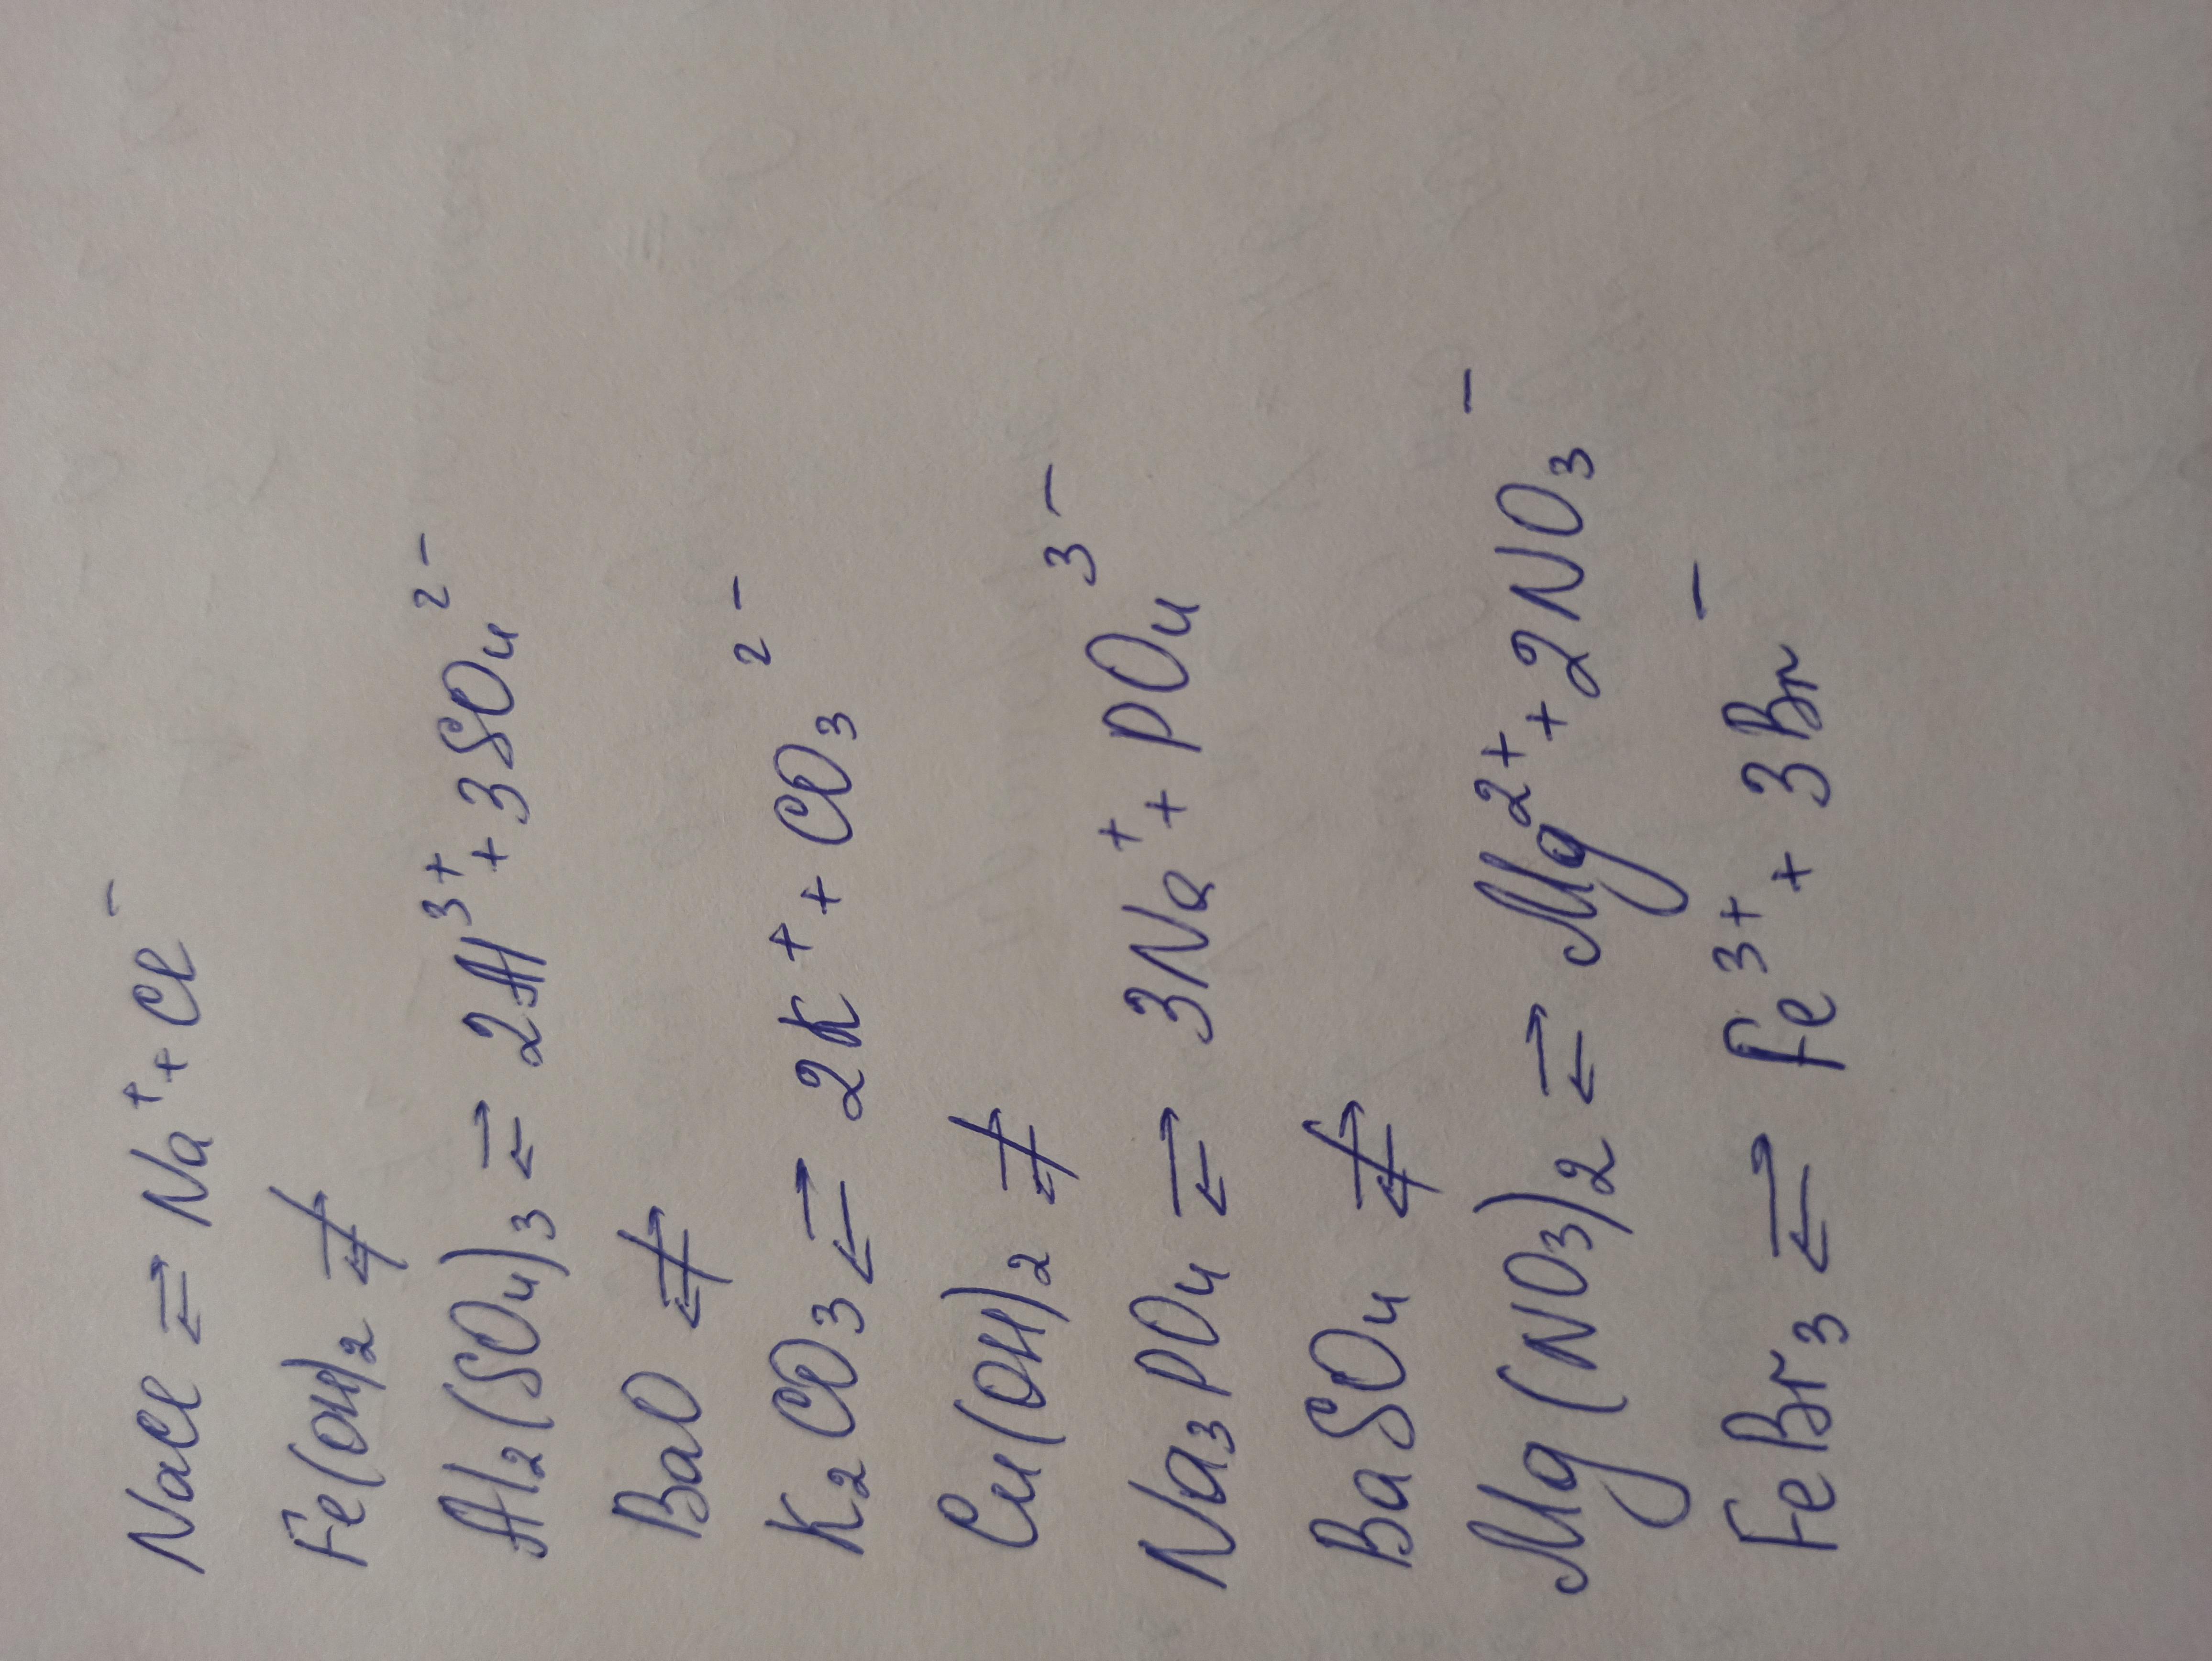 NaCl ⇄ Na⁺ + Cl⁻
Fe(OH)₂ ⇄̸
Al₂(SO₄)₃ ⇄ 2Al³⁺ + 3SO₄²⁻
BaO ⇄̸
K₂CO₃ ⇄ 2K⁺ + CO₃²⁻
Cu(OH)₂ ⇄̸
Na₃PO₄ ⇄ 3Na⁺ + PO₄³⁻
BaSO₄ ⇄̸
Mg(NO₃)₂ ⇄ Mg²⁺ + 2NO₃⁻
FeBr₃ ⇄ Fe³⁺ + 3Br⁻